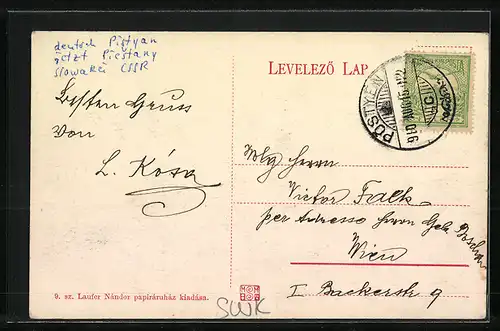 deutsch Pistyan
jetzt Piestany
Slowakei CSSR
LEVELEZŐ LAP
PÖSTYÉN
Besten Gruss
von
L. Kósa
Herrn
Victor Falk
per Adresse Herrn Gebr.
Wien
I Backerstr 9
9. sz. Laufer Nándor papiráruház kiadása.
SWK